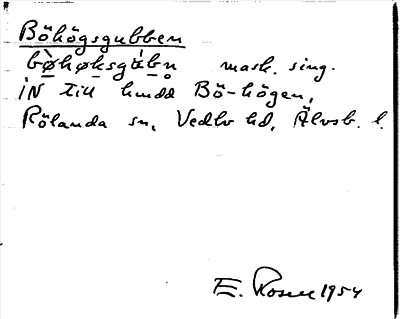 Böhögsgubben
bø̀høksgɵ́bn̥ mask. sing.
iN till hmdd Bö-högen,
Rölanda sn, Vedbo hd, Älvsb. l.
E. Rosell 1954